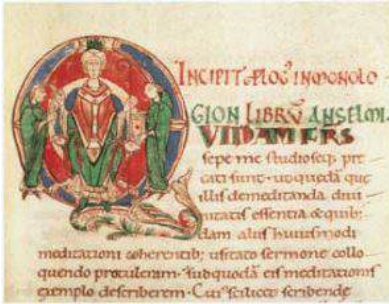 INCIPIT PLOG' IN MONOLO
GION LIBRV ANSELMI.
QVIDAM FRS
sepe me studioseq; pre
cati sunt. ut quedā que
illis de meditanda diui
nitatis essentia & quib;
dam aliis huiusmodi
meditationi coherentib; usitato sermone collo
quendo protuleram. sub quodā eis meditationis
exemplo describerem. Cui' scilicet scribende